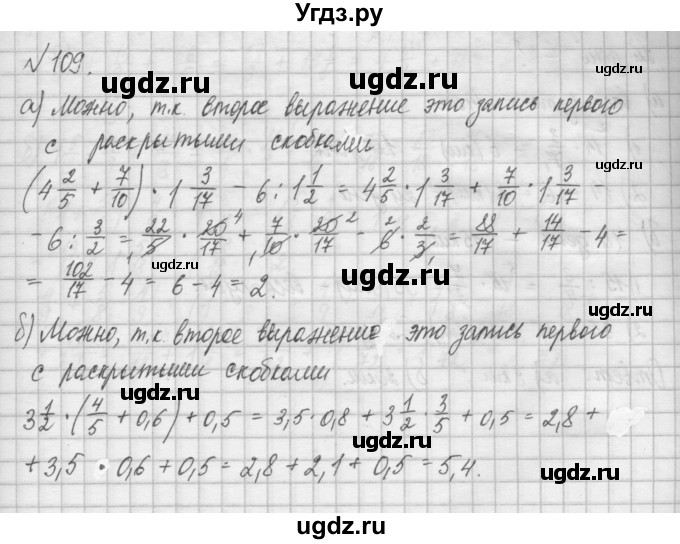 Угдз.ру
№109.
ugdz.ru
ugdz.ru
ugdz.ru
а) Можно, т.к. второе выражение это запись первого
с раскрытыми скобками
ugdz.ru
ugdz.ru
(4 2/5 + 7/10) · 1 3/17 - 6 : 1 1/2 = 4 2/5 · 1 3/17 + 7/10 · 1 3/17 -
- 6 : 3/2 = 22/5 · 20/17 4 + 7/10 · 20/17 2 - 6 2 · 2/3 = 88/17 + 14/17 - 4 =
ugdz.ru
ugdz.ru
= 102/17 - 4 = 6 - 4 = 2.
б) Можно, т.к. второе выражение это запись первого
ugdz.ru
с раскрытыми скобками
ugdz.ru
ugdz.ru
3 1/2 · (4/5 + 0,6) + 0,5 = 3,5 · 0,8 + 3 1/2 · 3/5 + 0,5 = 2,8 +
ugdz.ru
+ 3,5 · 0,6 + 0,5 = 2,8 + 2,1 + 0,5 = 5,4.
ugdz.ru
ugdz.ru
ugdz.ru